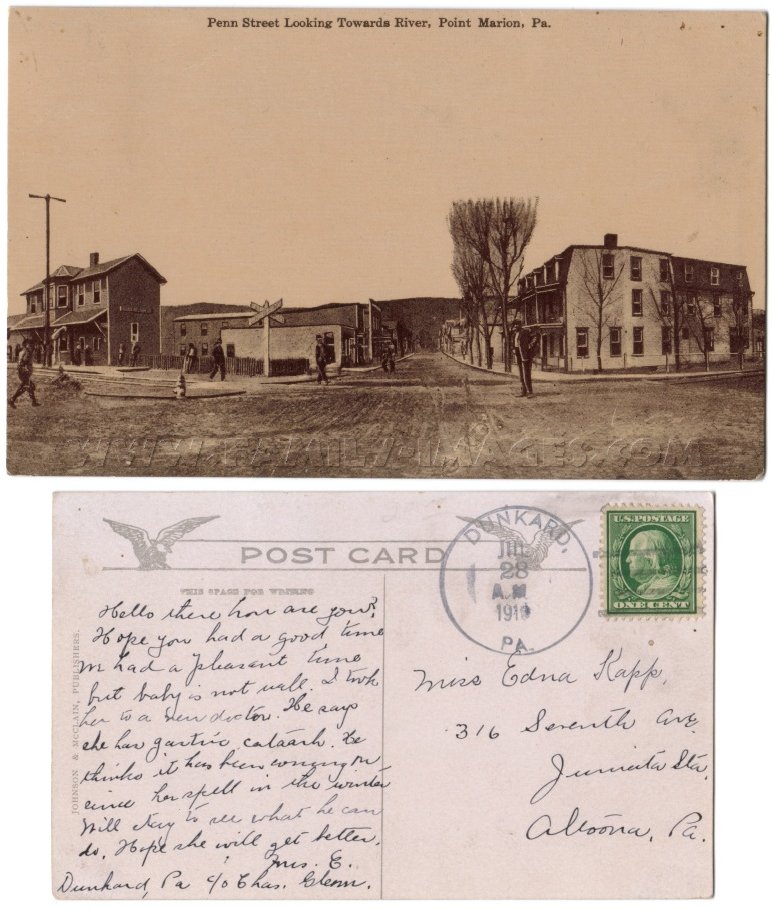 Penn Street Looking Towards River, Point Marion, Pa.
WWW.FAMILY-IMAGES.COM
POST CARD
THIS SPACE FOR WRITING
JOHNSON & MCCLAIN, PUBLISHERS.
DUNKARD,
JUL
28
A.M
1910
PA.
U.S. POSTAGE
ONE CENT
Hello there how are you?
Hope you had a good time
We had a pleasant time
but baby is not well. I took
her to a new doctor. He says
she has gastric cataarh. He
thinks it has been coming on
since her spell in the winter
Will stay to see what he can
do. Hope she will get better.
Mrs. E.
Dunkard, Pa c/o Chas. Glenn.
Miss Edna Kapp,
316 Seventh Ave,
Juniata Sta,
Altoona, Pa.